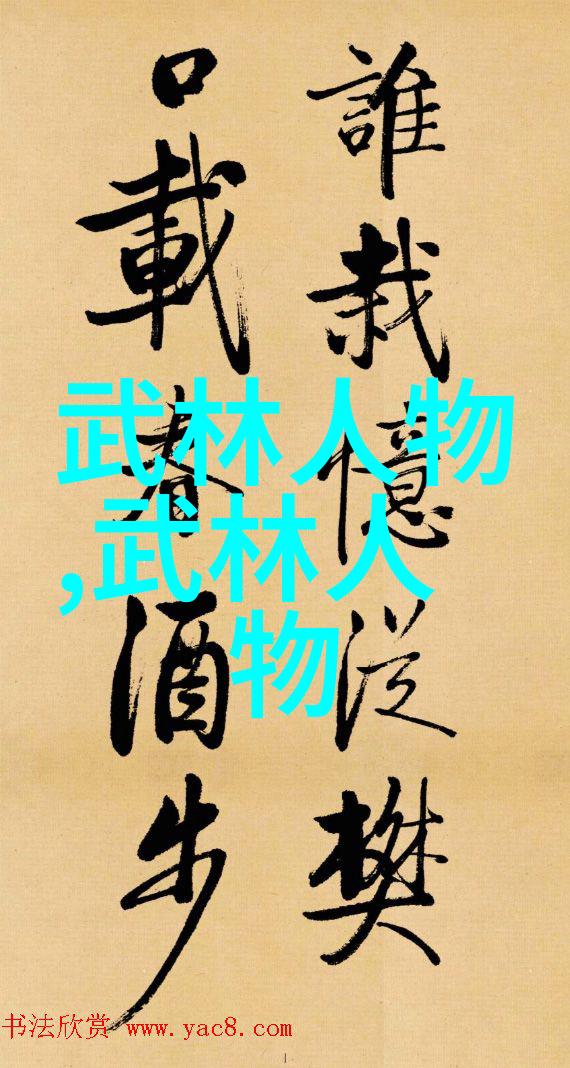 誰栽憶從樊
口載春酒步
武林人物
,武林人
物
书法欣赏 www.yac8.com